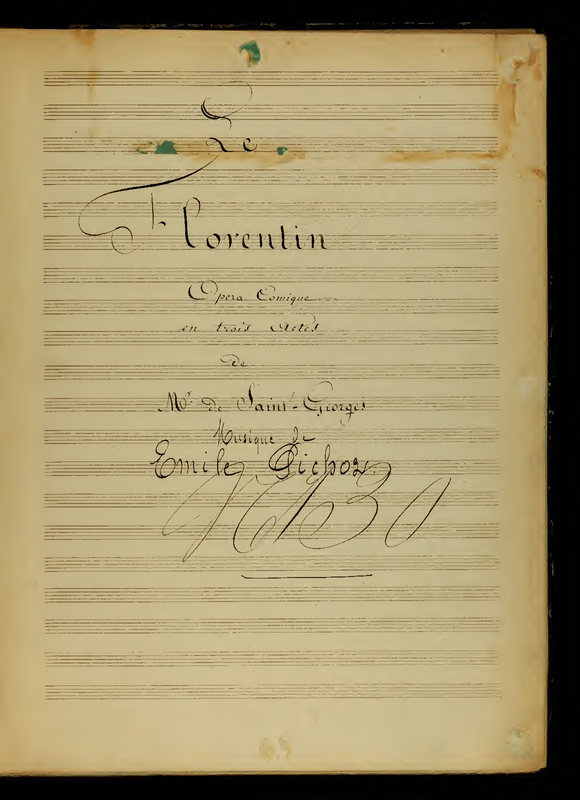 Le
Florentin
Opera Comique
en trois Actes
de
Mr. de Saint-Georges
Musique de
Emile Pichoz